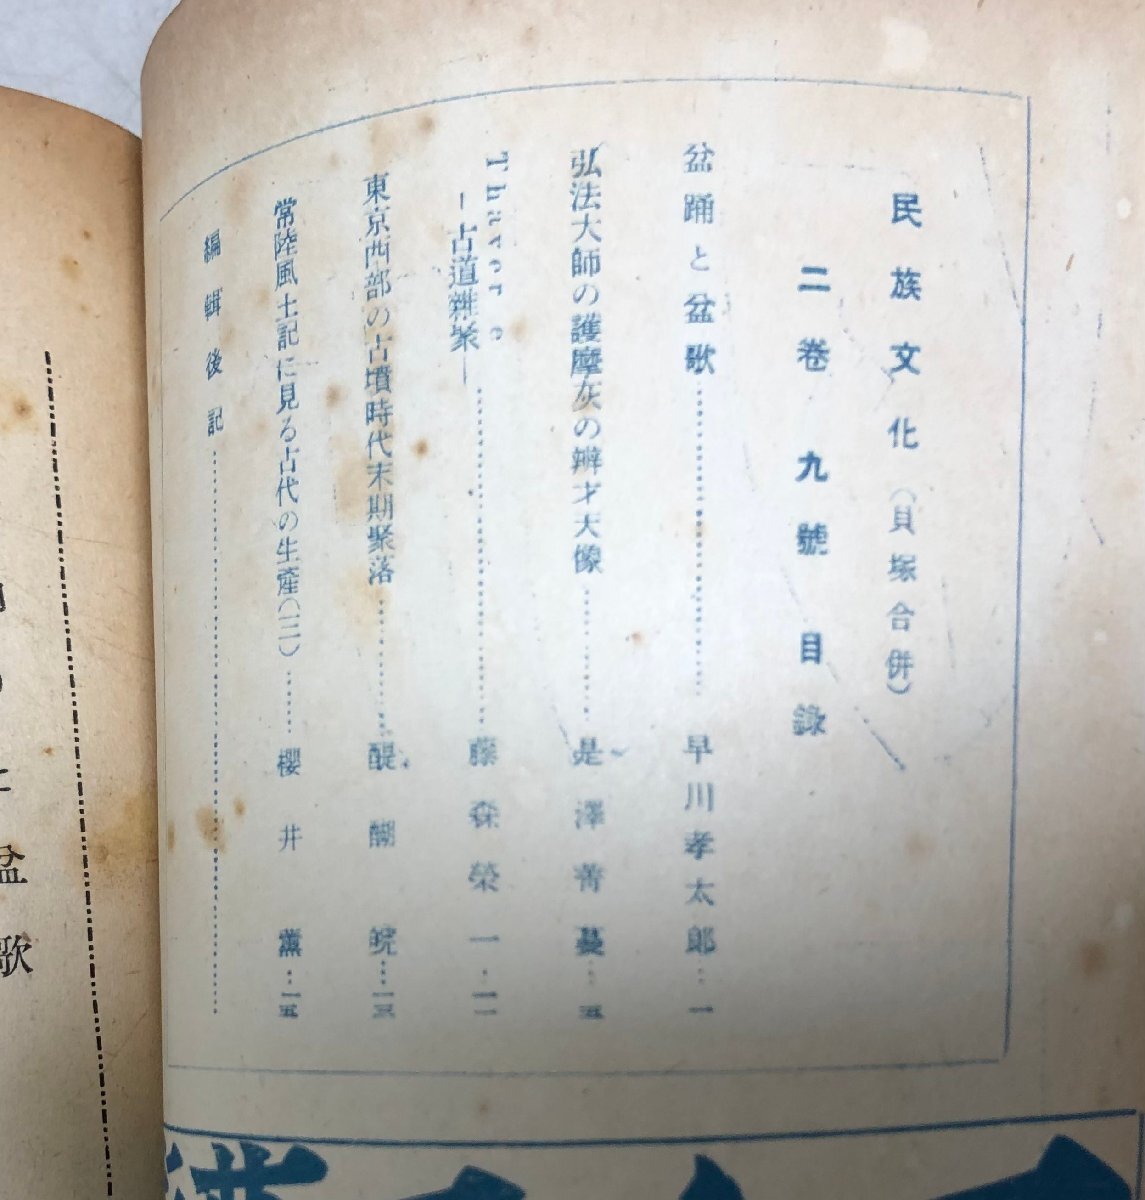 民族文化（貝塚合併）
二卷九號目錄
盆踊と盆歌……………………早川孝太郎…一
弘法大師の護摩灰の辨才天像………是澤
Tharer e
―古道雜聚―……………………藤森榮一…一一
東京西部の古墳時代末期聚落………醍醐晥…一三
常陸風土記に見る古代の生產（二）……櫻井薰…一五
編輯後記……………………………………
盆歌